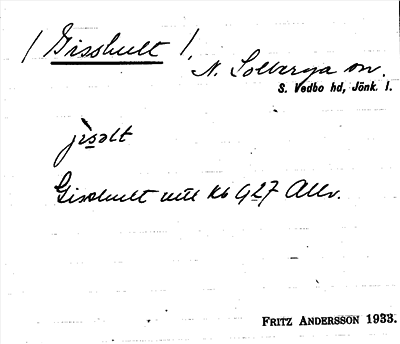 / Gisshult /.
N. Solberga sn.
S. Vedbo hd, Jönk. l.
jisəlt
Gisshult utl Kb 927 Allv.
FRITZ ANDERSSON 1933.